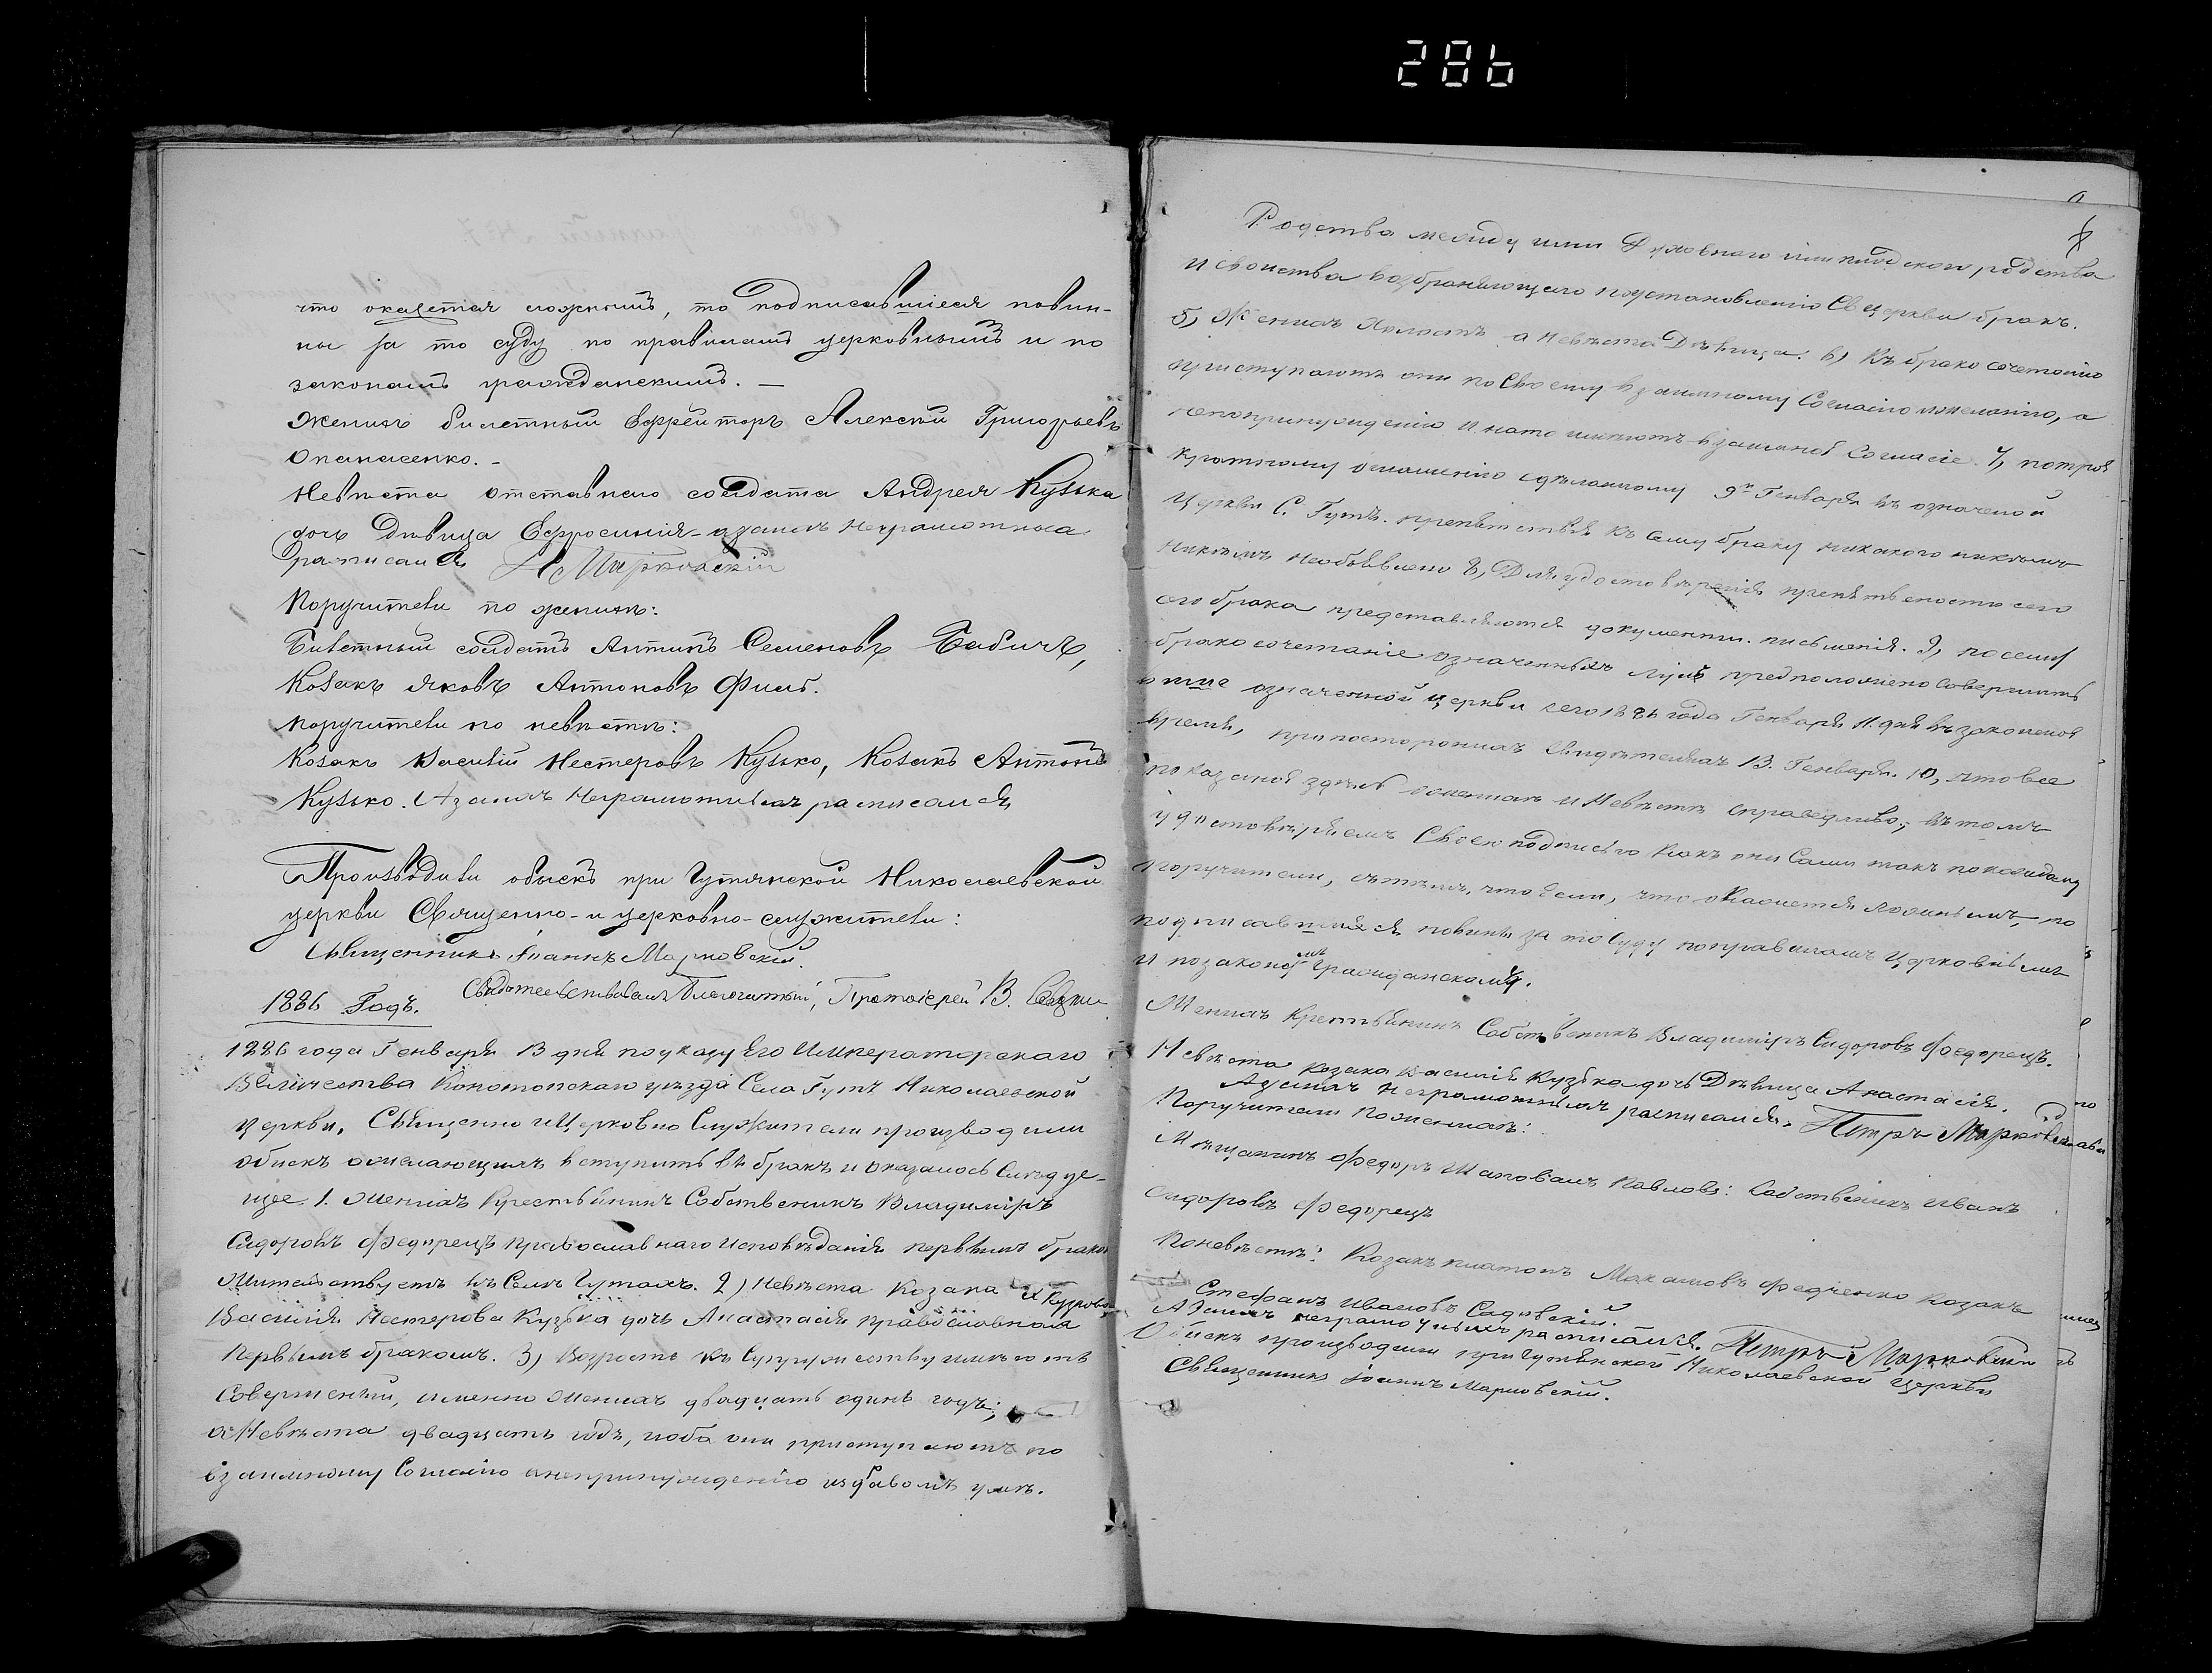 286
что окажется ложнымъ, то подписавшіеся повин-
ны за то суду по правиламъ церковнымъ и по
законамъ гражданскимъ. —
Женихъ билетный Ефрейторъ Алексѣй Григорьевъ
Опанасенко. -
Невѣста отставнаго солдата Андрея Кузька
дочь Дѣвица Ефросинія - а за нихъ неграмотныхъ
расписался Марковскій
Поручители по женихѣ:
Билетный солдатъ Антипъ Семеновъ Бабичъ,
Козакъ Яковъ Антоновъ
Поручители по невѣстѣ:
Козакъ Василій Нестеровъ Кузько, Козакъ Антонъ
Кузько. А за нихъ неграмотныхъ расписался
Производили обыскъ при Гутянской Николаевской
церкви Священно- и церковно-служители:
Священникъ Іоаннъ Марковскій.
Свидѣтельствовалъ Благочинный, Протоіерей В.
1886 Годъ.
1886 года Генваря 13 дня по указу Его Императорскаго
Величества Конотопскаго уѣзда Села Гутъ Николаевской
церкви, Священно и Церковно Служители производили
обискъ о желающихъ вступить въ бракъ и оказалось Слѣдую-
щее. 1. Женихъ Крестьянинъ Собственикъ Владиміръ
Сидоровъ Федорецъ православнаго исповѣданія первымъ бракомъ
Жительствуетъ въ Селѣ Гутахъ. 2) Невѣста Козака
Василія Нестерова Кузька дочь Анастасія православная
первымъ бракомъ. 3) Возрастъ къ Супружеству имѣютъ
Совершеный, именно Женихъ двадцать одинъ годъ;
а Невѣста двадцать годъ, и оба они приступаютъ по
взаимному Согласію а непринужденію и здравомъ умѣ.
Родства между ими Духовнаго или родства
и свойства возбраняющаго по установленію Св церкви бракъ.
5, Женихъ Холостъ а Невѣста Дѣвица. 6) Къ бракосочетанію
приступаютъ они по Своему взаимному Согласію и желанію, а
не по принужденію и на то имѣютъ взаимное Согласіе. 7, по трое
кратному оглашенію сдѣланному 9го Генваря въ означеной
Церкви С. Гутъ. препятствія къ сему браку никакого никѣмъ
никѣмъ необъявлено 8, Для удостовѣренія препятвености сего
сего брака представляются документи. письменія. 9, по сему
бракосочетаніе означенныхъ лицъ предположено Совершить
въ означенной церкви сего 1886 года Генваря дня въ законное
время, при постороннихъ Свидѣтеляхъ 13. Генваря. 10, что все
показаное здѣсь о женихѣ и Невѣстѣ справедливо; въ томъ
удостовѣряемъ Своею подписью какъ они Сами такъ по каждому
поручители, съ тѣмъ, что Если, что окажется ложнымъ, то
подписавшіяся повины за то Суду по правиламъ Церковнымъ
и по законамъ Гражданскому.
Женихъ Крестьянинъ Собственикъ Владиміръ Сидоровъ Федорецъ.
Невѣста козака Василія Кузька дочь Дѣвица Анастасія.
А за нихъ неграмотныхъ расписался. Петръ Марковскій
Поручители по женихѣ:
Мѣщанинъ Федоръ Шаповалъ Павловъ: Собственикъ Иванъ
Сидоровъ Федорецъ
По невѣстѣ: Козакъ Платонъ Максимовъ Федченко Козакъ
Стефанъ Ивановъ Садовскій.
А за нихъ неграмотныхъ расписался. Петръ Марковскій
Обискъ производили при Гутянской Николаевской церкви
Священникъ Іоаннъ Марковскій.